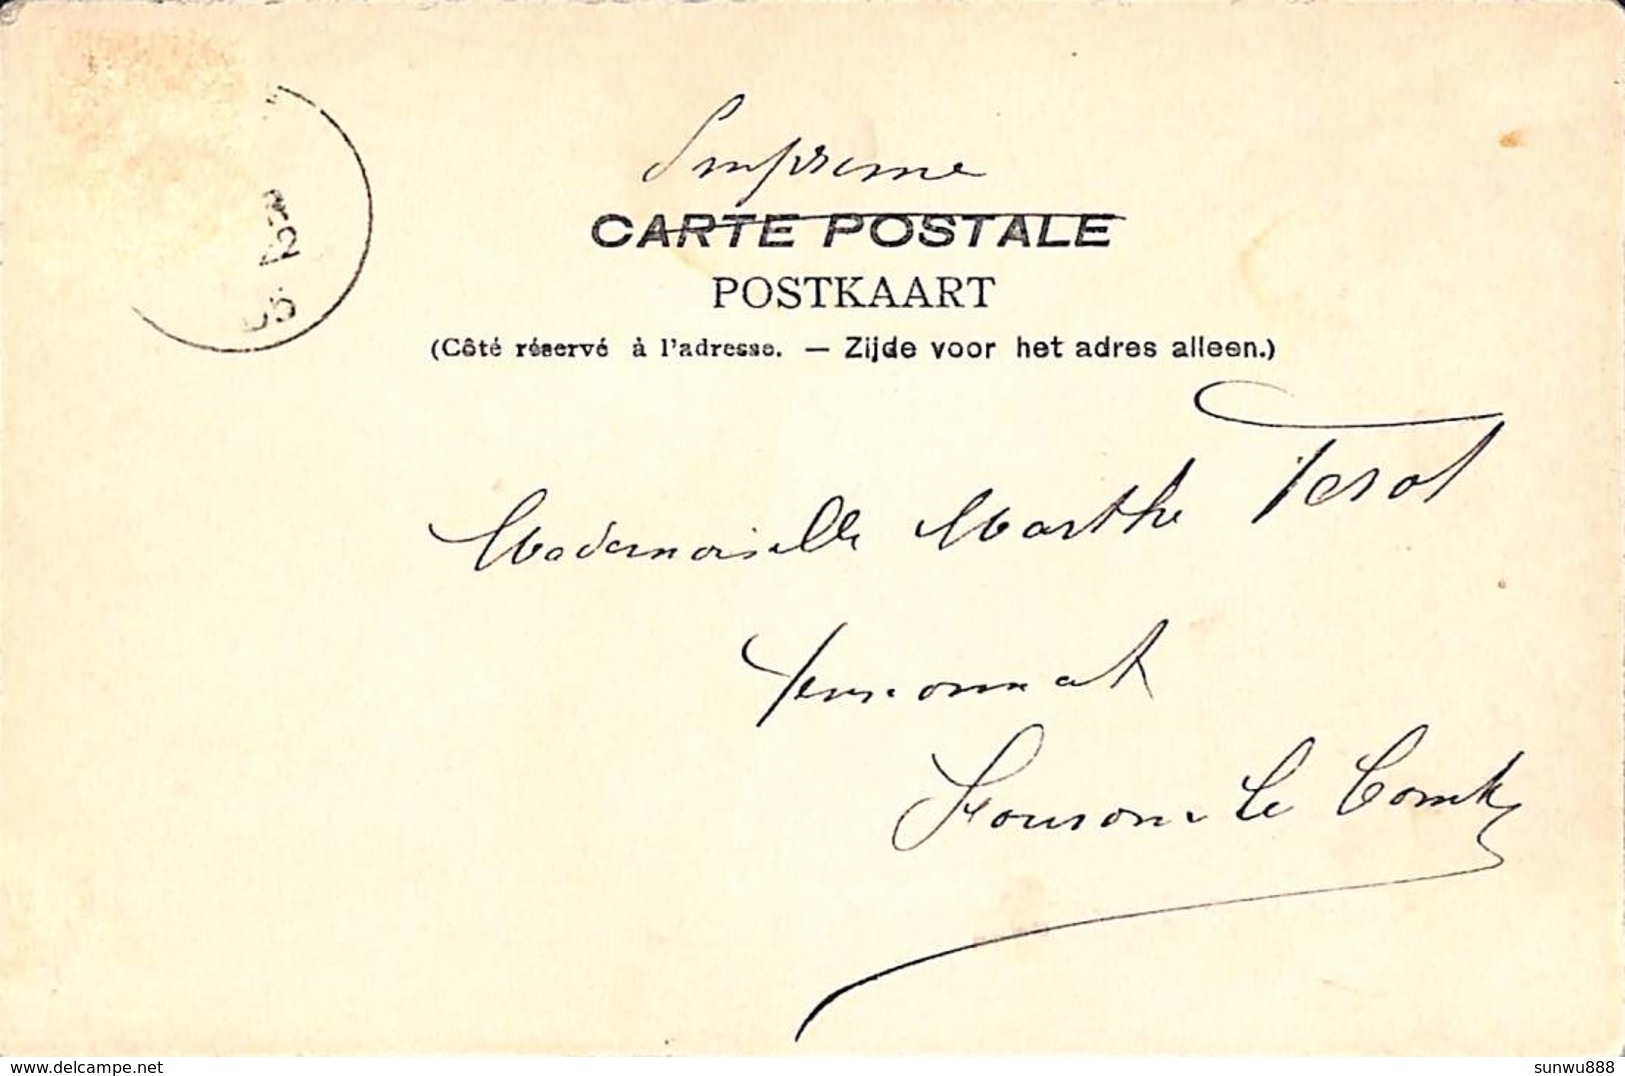 Imprimé
CARTE POSTALE
POSTKAART
(Côté réservé à l'adresse. — Zijde voor het adres alleen.)
22
05
Mademoiselle Marthe
Pensionnat
le Comte
delcampe.net
sunwu888